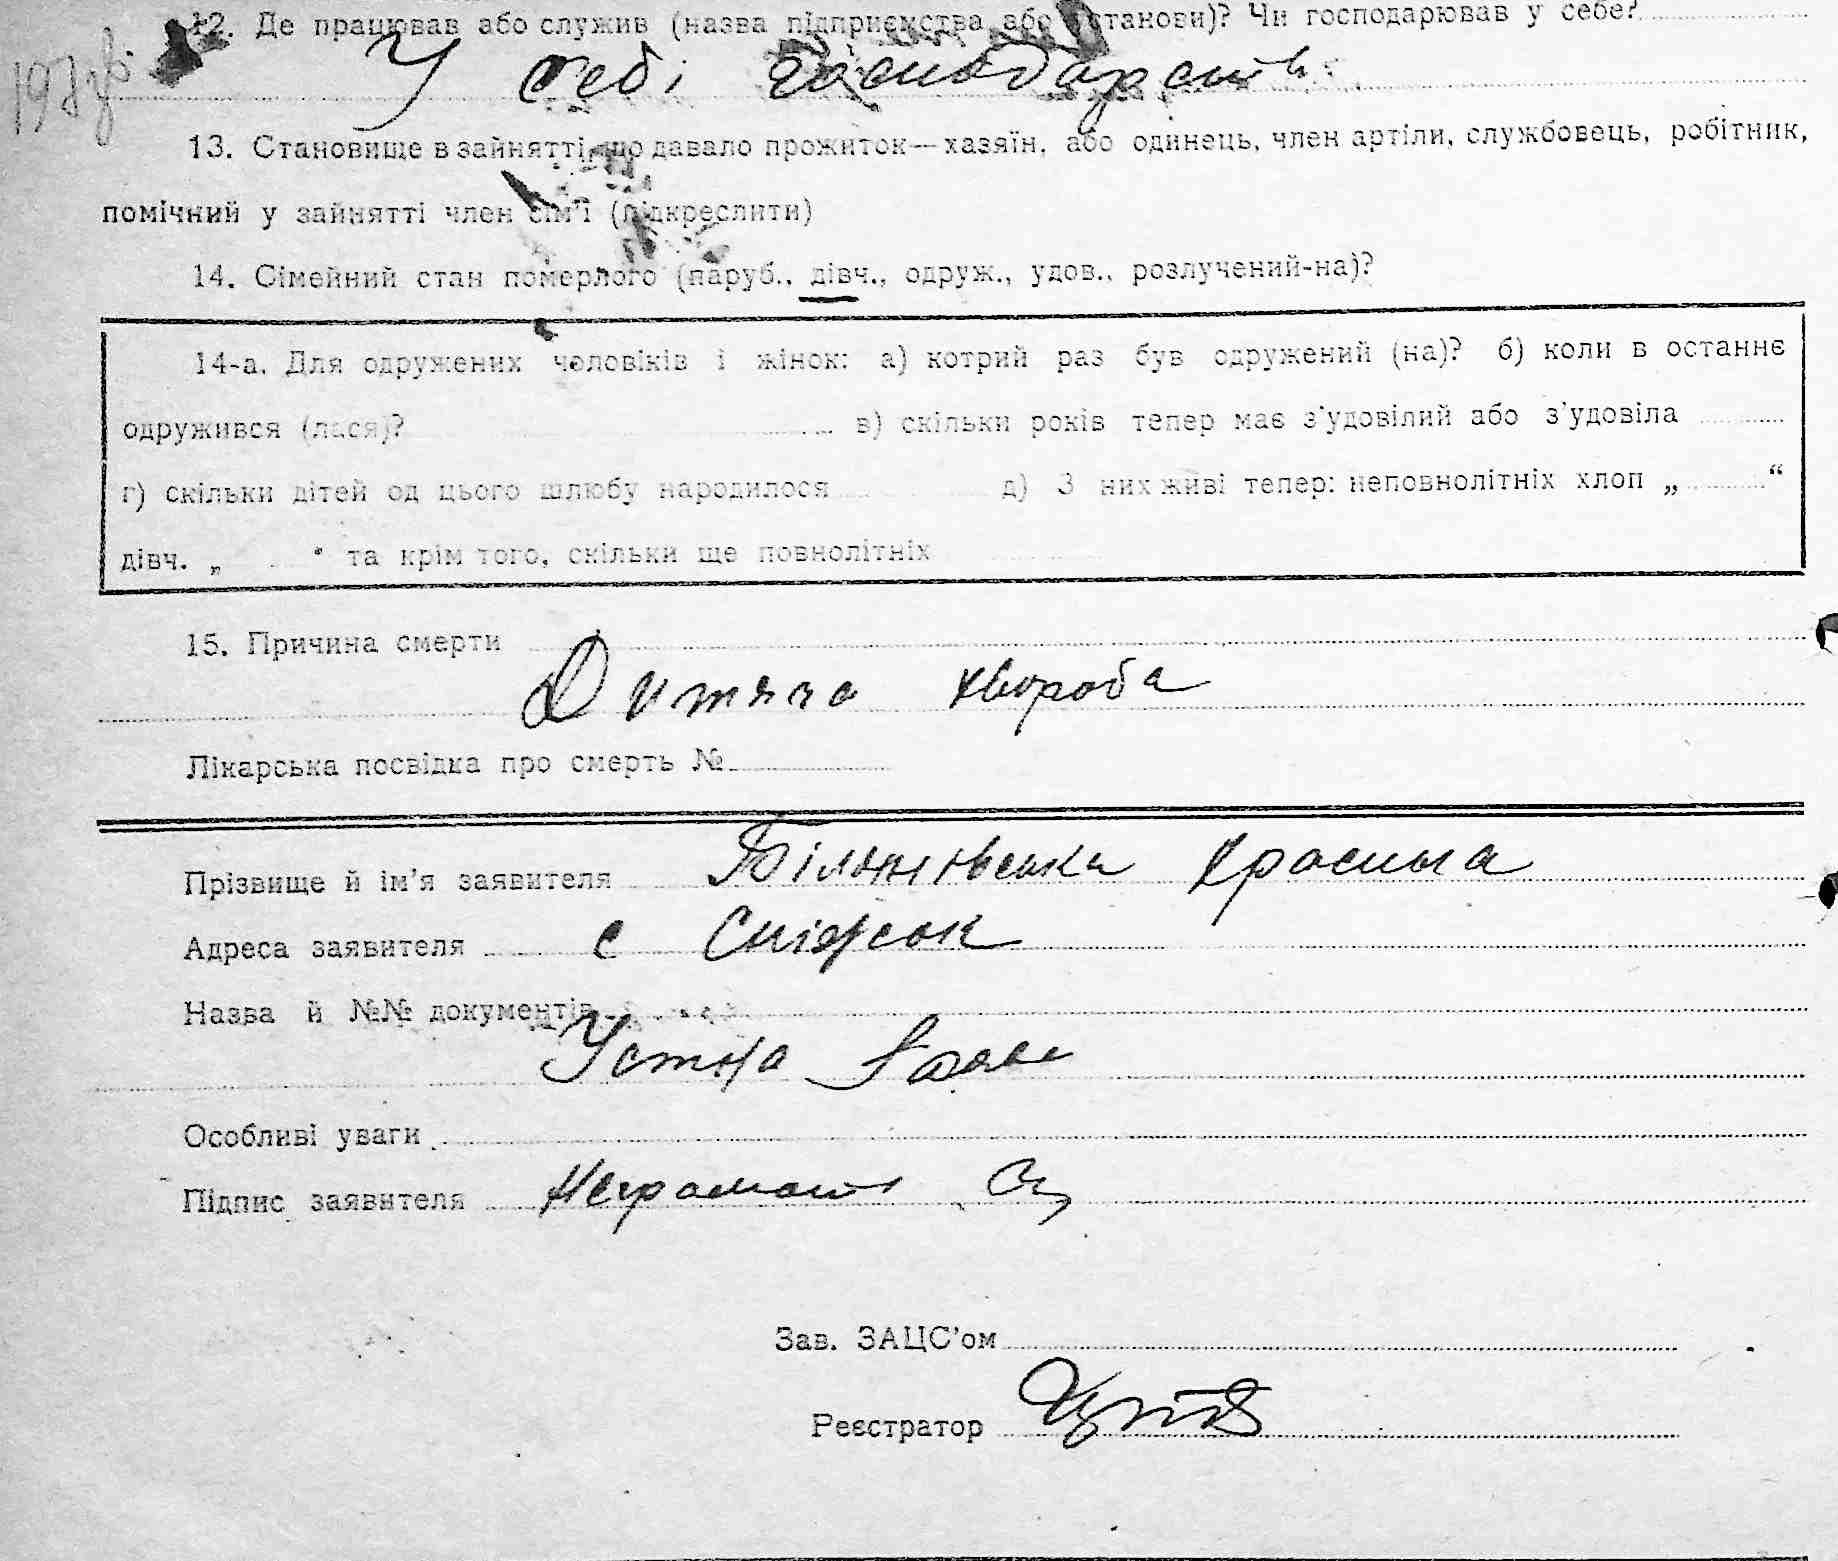 12. Де працював або служив (назва підприємства або установи)? Чи господарював у себе?
У себі
13. Становище в зайнятті, що давало прожиток—хазяїн, або одинець, член артіли, службовець, робітник,
помічний у зайнятті член сім'ї (підкреслити)
14. Сімейний стан померлого (паруб., дівч., одруж., удов., розлучений-на)?
14-а. Для одружених чоловіків і жінок: а) котрий раз був одружений (на)? б) коли в останнє
одружився (лася)? в) скільки років тепер має з'удовілий або з'удовіла
г) скільки дітей од цього шлюбу народилося д) З них живі тепер: неповнолітніх хлоп „ “
дівч. „ “ та крім того, скільки ще повнолітніх
15. Причина смерти
Дитяча хвороба
Лікарська посвідка про смерть №
Прізвище й ім'я заявителя
Адреса заявителя с
Назва й №№ документів
Устна заява
Особливі уваги
Підпис заявителя
Зав. ЗАЦС'ом
Реєстратор